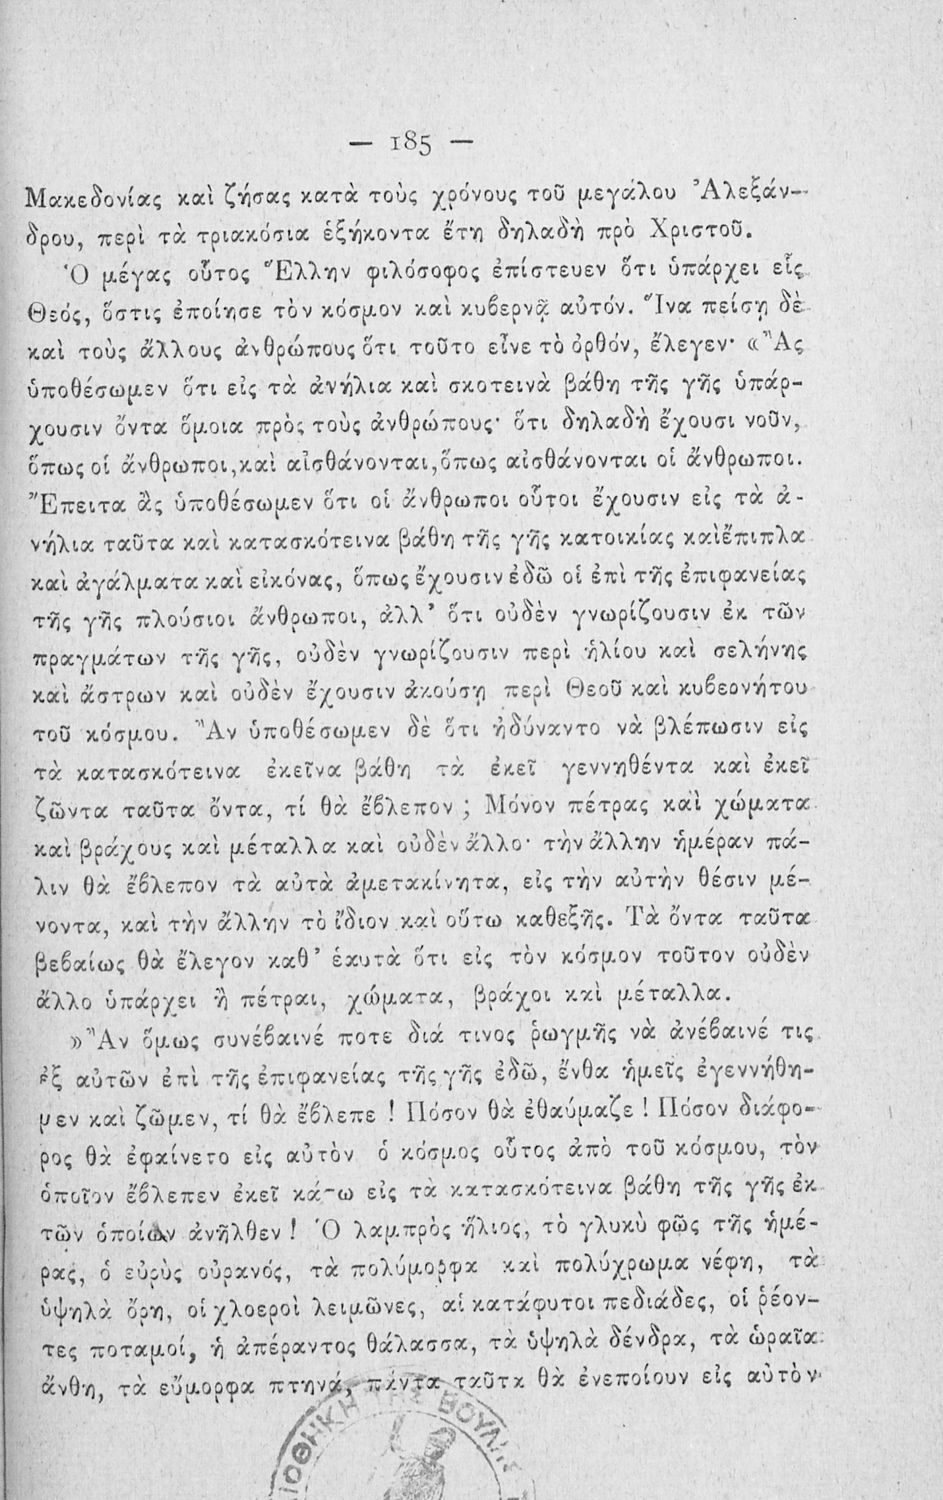 — 185 —
Μακεδονίας καὶ ζήσας κατὰ τοὺς χρόνους τοῦ μεγάλου Ἀλεξάν-
δρου, περὶ τὰ τριακόσια ἑξήκοντα ἔτη δηλαδὴ πρὸ Χριστοῦ.
Ὁ μέγας οὗτος Ἕλλην φιλόσοφος ἐπίστευεν ὅτι ὑπάρχει εἷς
Θεός, ὅστις ἐποίησε τὸν κόσμον καὶ κυβερνᾷ αὐτόν. Ἵνα πείσῃ δὲ
καὶ τοὺς ἄλλους ἀνθρώπους ὅτι τοῦτο εἶνε τὸ ὀρθόν, ἔλεγεν· «Ἂς
ὑποθέσωμεν ὅτι εἰς τὰ ἀνήλια καὶ σκοτεινὰ βάθη τῆς γῆς ὑπάρ-
χουσιν ὄντα ὅμοια πρὸς τοὺς ἀνθρώπους· ὅτι δηλαδὴ ἔχουσι νοῦν,
ὅπως οἱ ἄνθρωποι, καὶ αἰσθάνονται, ὅπως αἰσθάνονται οἱ ἄνθρωποι.
Ἔπειτα ἂς ὑποθέσωμεν ὅτι οἱ ἄνθρωποι οὗτοι ἔχουσιν εἰς τὰ ἀ-
νήλια ταῦτα καὶ κατασκότεινα βάθη τῆς γῆς κατοικίας καὶ ἔπιπλα
καὶ ἀγάλματα καὶ εἰκόνας, ὅπως ἔχουσιν ἐδῶ οἱ ἐπὶ τῆς ἐπιφανείας
τῆς γῆς πλούσιοι ἄνθρωποι, ἀλλ’ ὅτι οὐδὲν γνωρίζουσιν ἐκ τῶν
πραγμάτων τῆς γῆς, οὐδὲν γνωρίζουσιν περὶ ἡλίου καὶ σελήνης
καὶ ἄστρων καὶ οὐδὲν ἔχουσιν ἀκούσῃ περὶ Θεοῦ καὶ κυβερνήτου
τοῦ κόσμου. Ἂν ὑποθέσωμεν δὲ ὅτι ἠδύναντο νὰ βλέπωσιν εἰς
τὰ κατασκότεινα ἐκεῖνα βάθη τὰ ἐκεῖ γεννηθέντα καὶ ἐκεῖ
ζῶντα ταῦτα ὄντα, τί θὰ ἔβλεπον ; Μόνον πέτρας καὶ χώματα
καὶ βράχους καὶ μέταλλα καὶ οὐδὲν ἄλλο· τὴν ἄλλην ἡμέραν πά-
λιν θὰ ἔβλεπον τὰ αὐτὰ ἀμετακίνητα, εἰς τὴν αὐτὴν θέσιν μέ-
νοντα, καὶ τὴν ἄλλην τὸ ἴδιον καὶ οὕτω καθεξῆς. Τὰ ὄντα ταῦτα
βεβαίως θὰ ἔλεγον καθ’ ἑαυτὰ ὅτι εἰς τὸν κόσμον τοῦτον οὐδὲν
ἄλλο ὑπάρχει ἢ πέτραι, χώματα, βράχοι καὶ μέταλλα.
»Ἂν ὅμως συνέβαινέ ποτε διά τινος ῥωγμῆς νὰ ἀνέβαινέ τις
ἐξ αὐτῶν ἐπὶ τῆς ἐπιφανείας τῆς γῆς ἐδῶ, ἔνθα ἡμεῖς ἐγεννήθη-
μεν καὶ ζῶμεν, τί θὰ ἔβλεπε ! Πόσον θὰ ἐθαύμαζε ! Πόσον διάφο-
ρος θὰ ἐφαίνετο εἰς αὐτὸν ὁ κόσμος οὗτος ἀπὸ τοῦ κόσμου, τὸν
ὁποῖον ἔβλεπεν ἐκεῖ κάτω εἰς τὰ κατασκότεινα βάθη τῆς γῆς ἐκ
τῶν ὁποίων ἀνῆλθεν ! Ὁ λαμπρὸς ἥλιος, τὸ γλυκὺ φῶς τῆς ἡμέ-
ρας, ὁ εὐρὺς οὐρανός, τὰ πολύμορφα καὶ πολύχρωμα νέφη, τὰ
ὑψηλὰ ὄρη, οἱ χλοεροὶ λειμῶνες, αἱ κατάφυτοι πεδιάδες, οἱ ῥέον-
τες ποταμοί, ἡ ἀπέραντος θάλασσα, τὰ ὑψηλὰ δένδρα, τὰ ὡραῖα
ἄνθη, τὰ εὔμορφα πτηνά, πάντα ταῦτα θὰ ἐνεποίουν εἰς αὐτὸν
ΙΟΘΗΚΗ ΤΗΣ ΒΟΥΛΗΣ